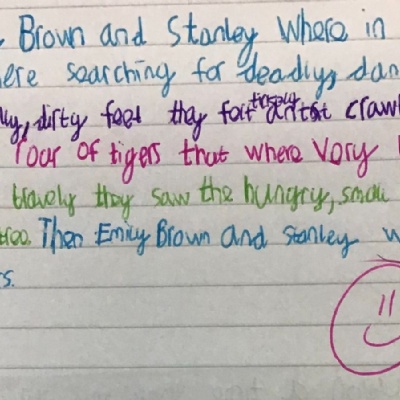 Brown and Stanley Where in
ere searching for deadly, dan
lly, dirty feet they felt tinsely crawl
roar of tigers that where Vory
bravely they saw the hungry, small
tree. Then Emily Brown and Stanley w
rs.